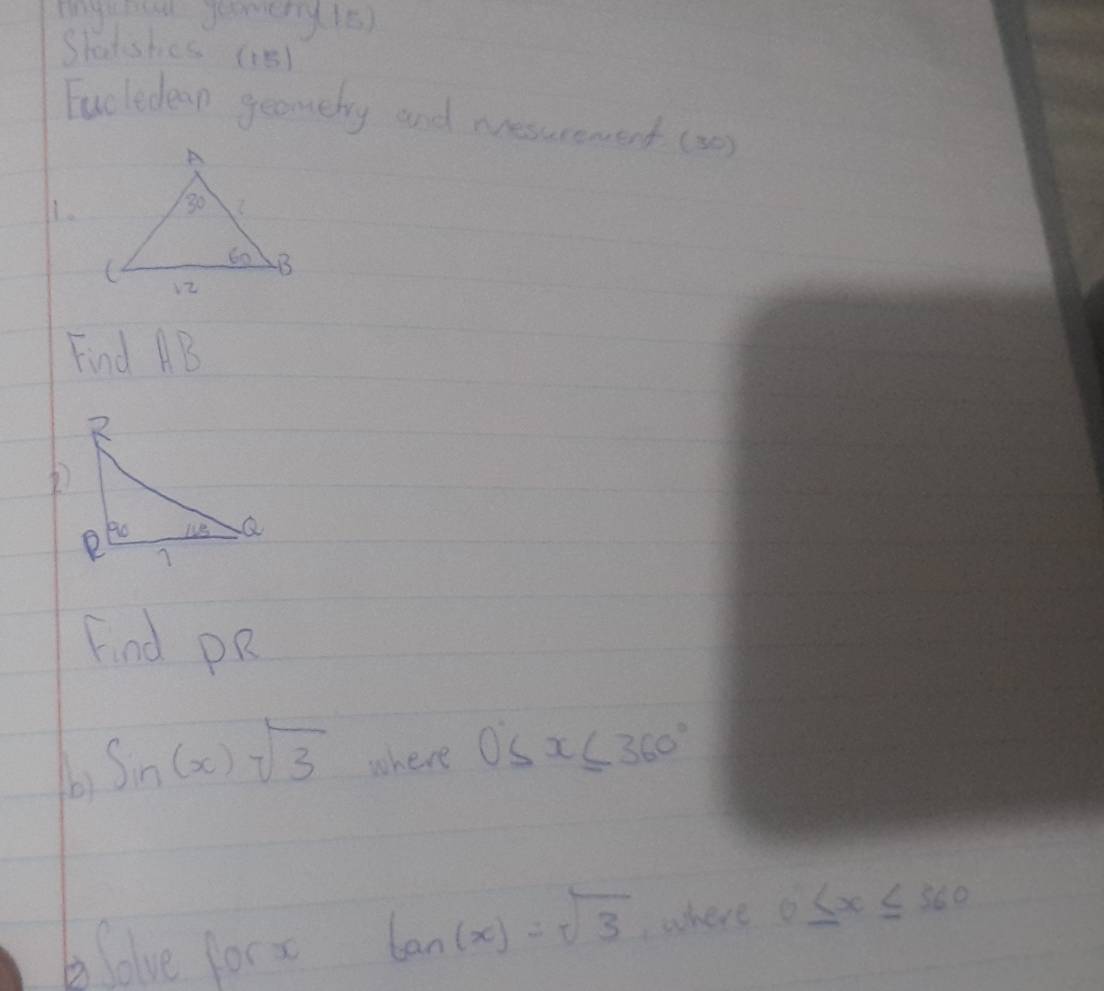 geometry (15)
Statistics (15)
Eucledean geometry and mesurement (30)
A
1. 30 2
C 60 B
12
Find AB
R
2)
P 90 45 Q
7
Find PR
b) Sin(x) √3 where 0° ≤ x ≤ 360°
Solve for x tan(x) = √3, where 0 ≤ x ≤ 360